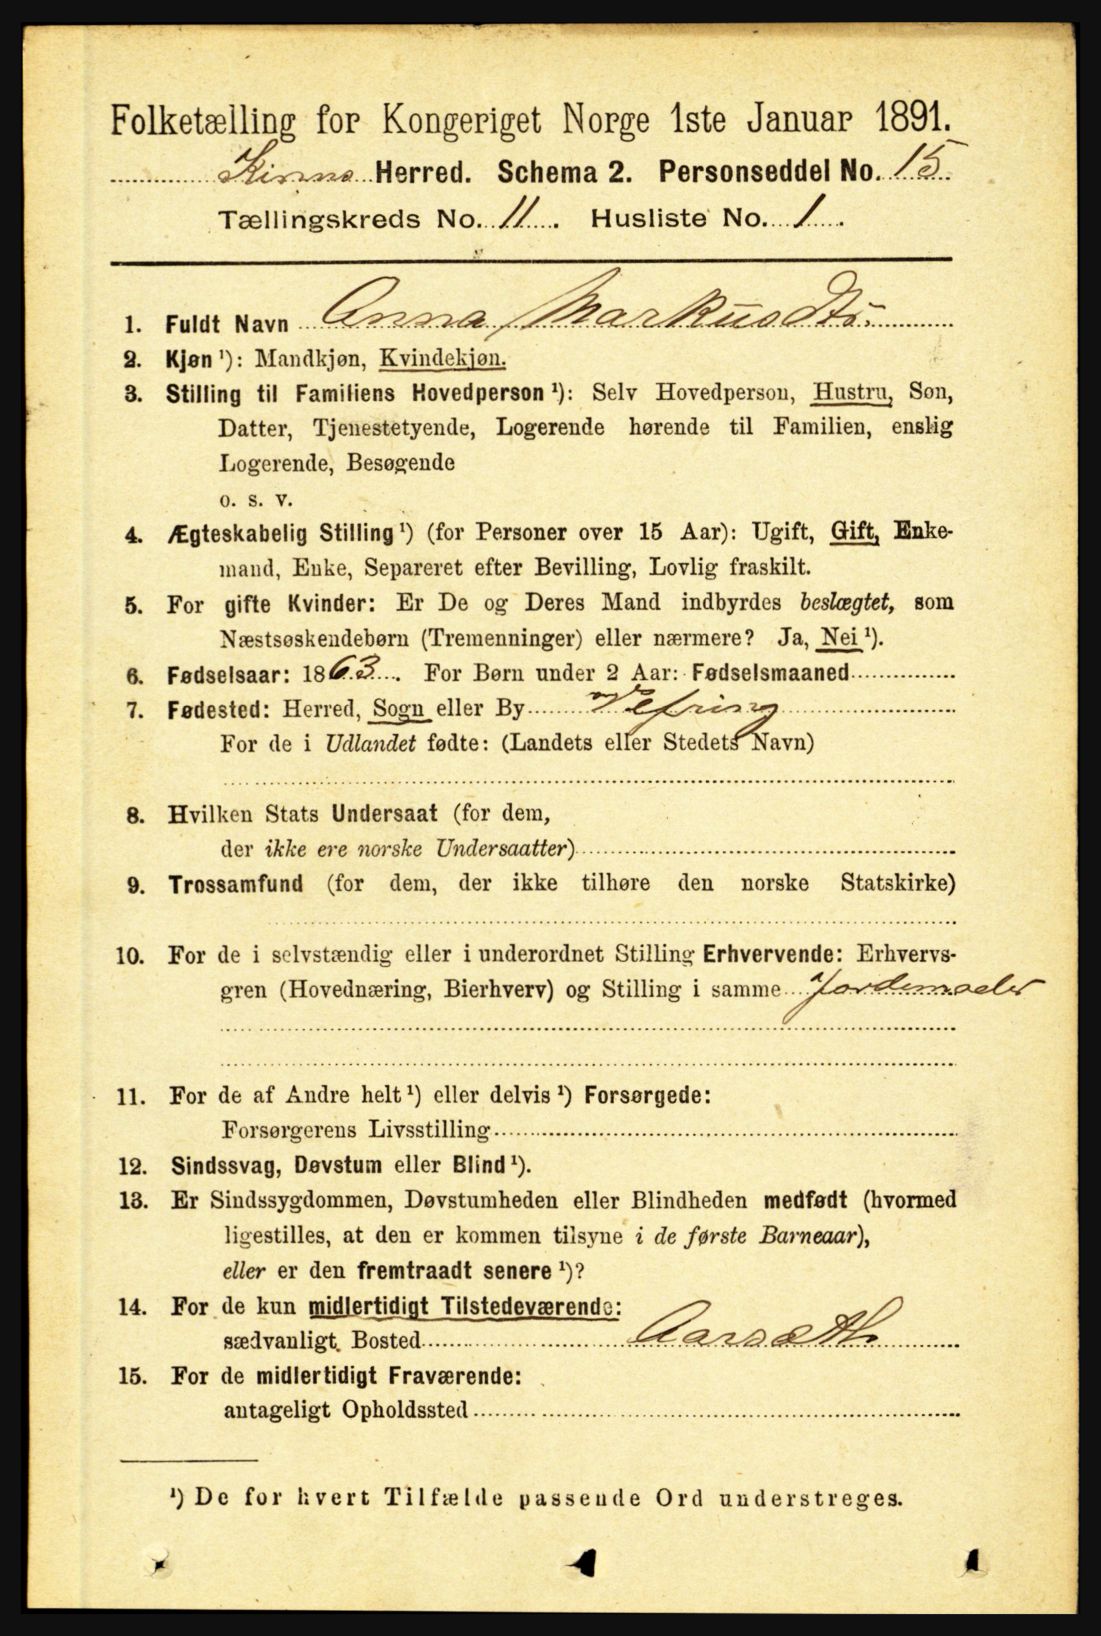 Folketælling for Kongeriget Norge 1ste Januar 1891.
Kinns Herred. Schema 2. Personseddel No. 15
Tællingskreds No. 11. Husliste No. 1.
1. Fuldt Navn Anna Markusdtr.
2. Kjøn ¹): Mandkjøn, Kvindekjøn.
3. Stilling til Familiens Hovedperson ¹): Selv Hovedperson, Hustru, Søn,
Datter, Tjenestetyende, Logerende hørende til Familien, enslig
Logerende, Besøgende
o. s. v.
4. Ægteskabelig Stilling ¹) (for Personer over 15 Aar): Ugift, Gift, Enke-
mand, Enke, Separeret efter Bevilling, Lovlig fraskilt.
5. For gifte Kvinder: Er De og Deres Mand indbyrdes beslægtet, som
Næstsøskendebørn (Tremenninger) eller nærmere? Ja, Nei ¹).
6. Fødselsaar: 1863. For Børn under 2 Aar: Fødselsmaaned
7. Fødested: Herred, Sogn eller By Vefring
For de i Udlandet fødte: (Landets eller Stedets Navn)
8. Hvilken Stats Undersaat (for dem,
der ikke ere norske Undersaatter)
9. Trossamfund (for dem, der ikke tilhøre den norske Statskirke)
10. For de i selvstændig eller i underordnet Stilling Erhvervende: Erhvervs-
gren (Hovednæring, Bierhverv) og Stilling i samme Jordemoder
11. For de af Andre helt ¹) eller delvis ¹) Forsørgede:
Forsørgerens Livsstilling
12. Sindssvag, Døvstum eller Blind ¹).
13. Er Sindssygdommen, Døvstumheden eller Blindheden medfødt (hvormed
ligestilles, at den er kommen tilsyne i de første Barneaar),
eller er den fremtraadt senere ¹)?
14. For de kun midlertidigt Tilstedeværende:
sædvanligt Bosted Aarsæth
15. For de midlertidigt Fraværende:
antageligt Opholdssted
¹) De for hvert Tilfælde passende Ord understreges.